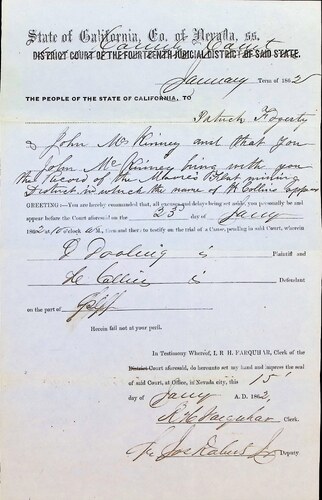 State of California, Co. of Nevada, ss.
County Court
DISTRICT COURT OF THE FOURTEENTH JUDICIAL DISTRICT OF SAID STATE.
January Term of 1862
THE PEOPLE OF THE STATE OF CALIFORNIA, TO
Patrick Fogerty
& John McKinney and that you
John McKinney bring with you
the Record of the Moore's Flat mining
District in which the name of H Collins appears
GREETING:—You are hereby commanded, that, all excuses and delays being set aside, you personally be and
appear before the Court aforesaid on the 23d day of Jany
1862 10 o'clock A M., then and there to testify on the trial of a Cause, pending in said Court, wherein
D Dooling is Plaintiff and
H Collins is Defendant
on the part of Plff
Herein fail not at your peril.
In Testimony Whereof, I, R. H. FARQUHAR, Clerk of the
District Court aforesaid, do hereunto set my hand and impress the seal
of said Court, at Office, in Nevada city, this 15
day of Jany A. D. 1862,
R H Farquhar Clerk.
Deputy